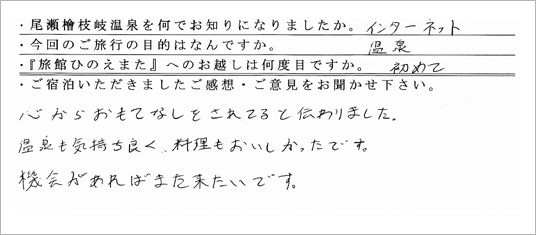 ・尾瀬檜枝岐温泉を何でお知りになりましたか。インターネット
・今回のご旅行の目的はなんですか。 温泉
・『旅館ひのえまた』へのお越しは何度目ですか。 初めて
・ご宿泊いただきましたご感想・ご意見をお聞かせ下さい。
心からおもてなしをされてると伝わりました。
温泉も気持ち良く、料理もおいしかったです。
機会があればまた来たいです。